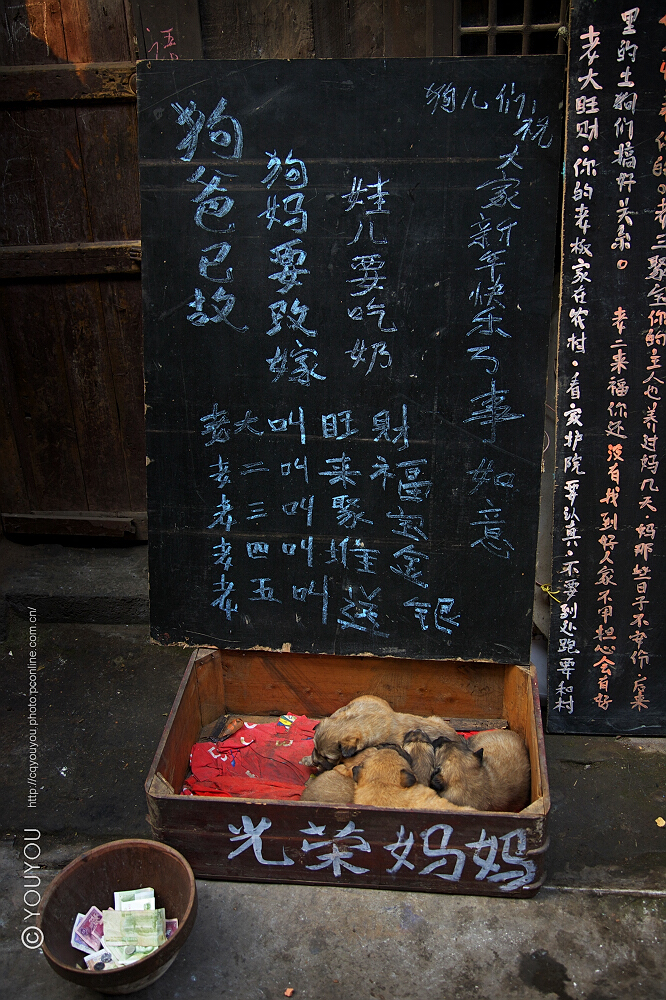 狗儿们，祝
大家新年快乐万事如意
娃儿要吃奶
狗妈要改嫁
狗爸已故
老大叫旺财
老二叫来福
老三叫聚宝
老四叫堆金
老五叫送银
老大旺财·你的老板家在农村·看家护院要认真·不要到处跑要和村
里的土狗们搞好关系。老二来福你还没有找到好人家不用担心会有好
老三聚宝你的主人也养过妈几天妈那些日子不容你后来
光荣妈妈
© YOUYOU http://cqyouyou.photo.pconline.com.cn/